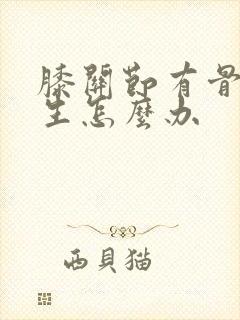 膝關節有骨
生怎麼办
西貝猫